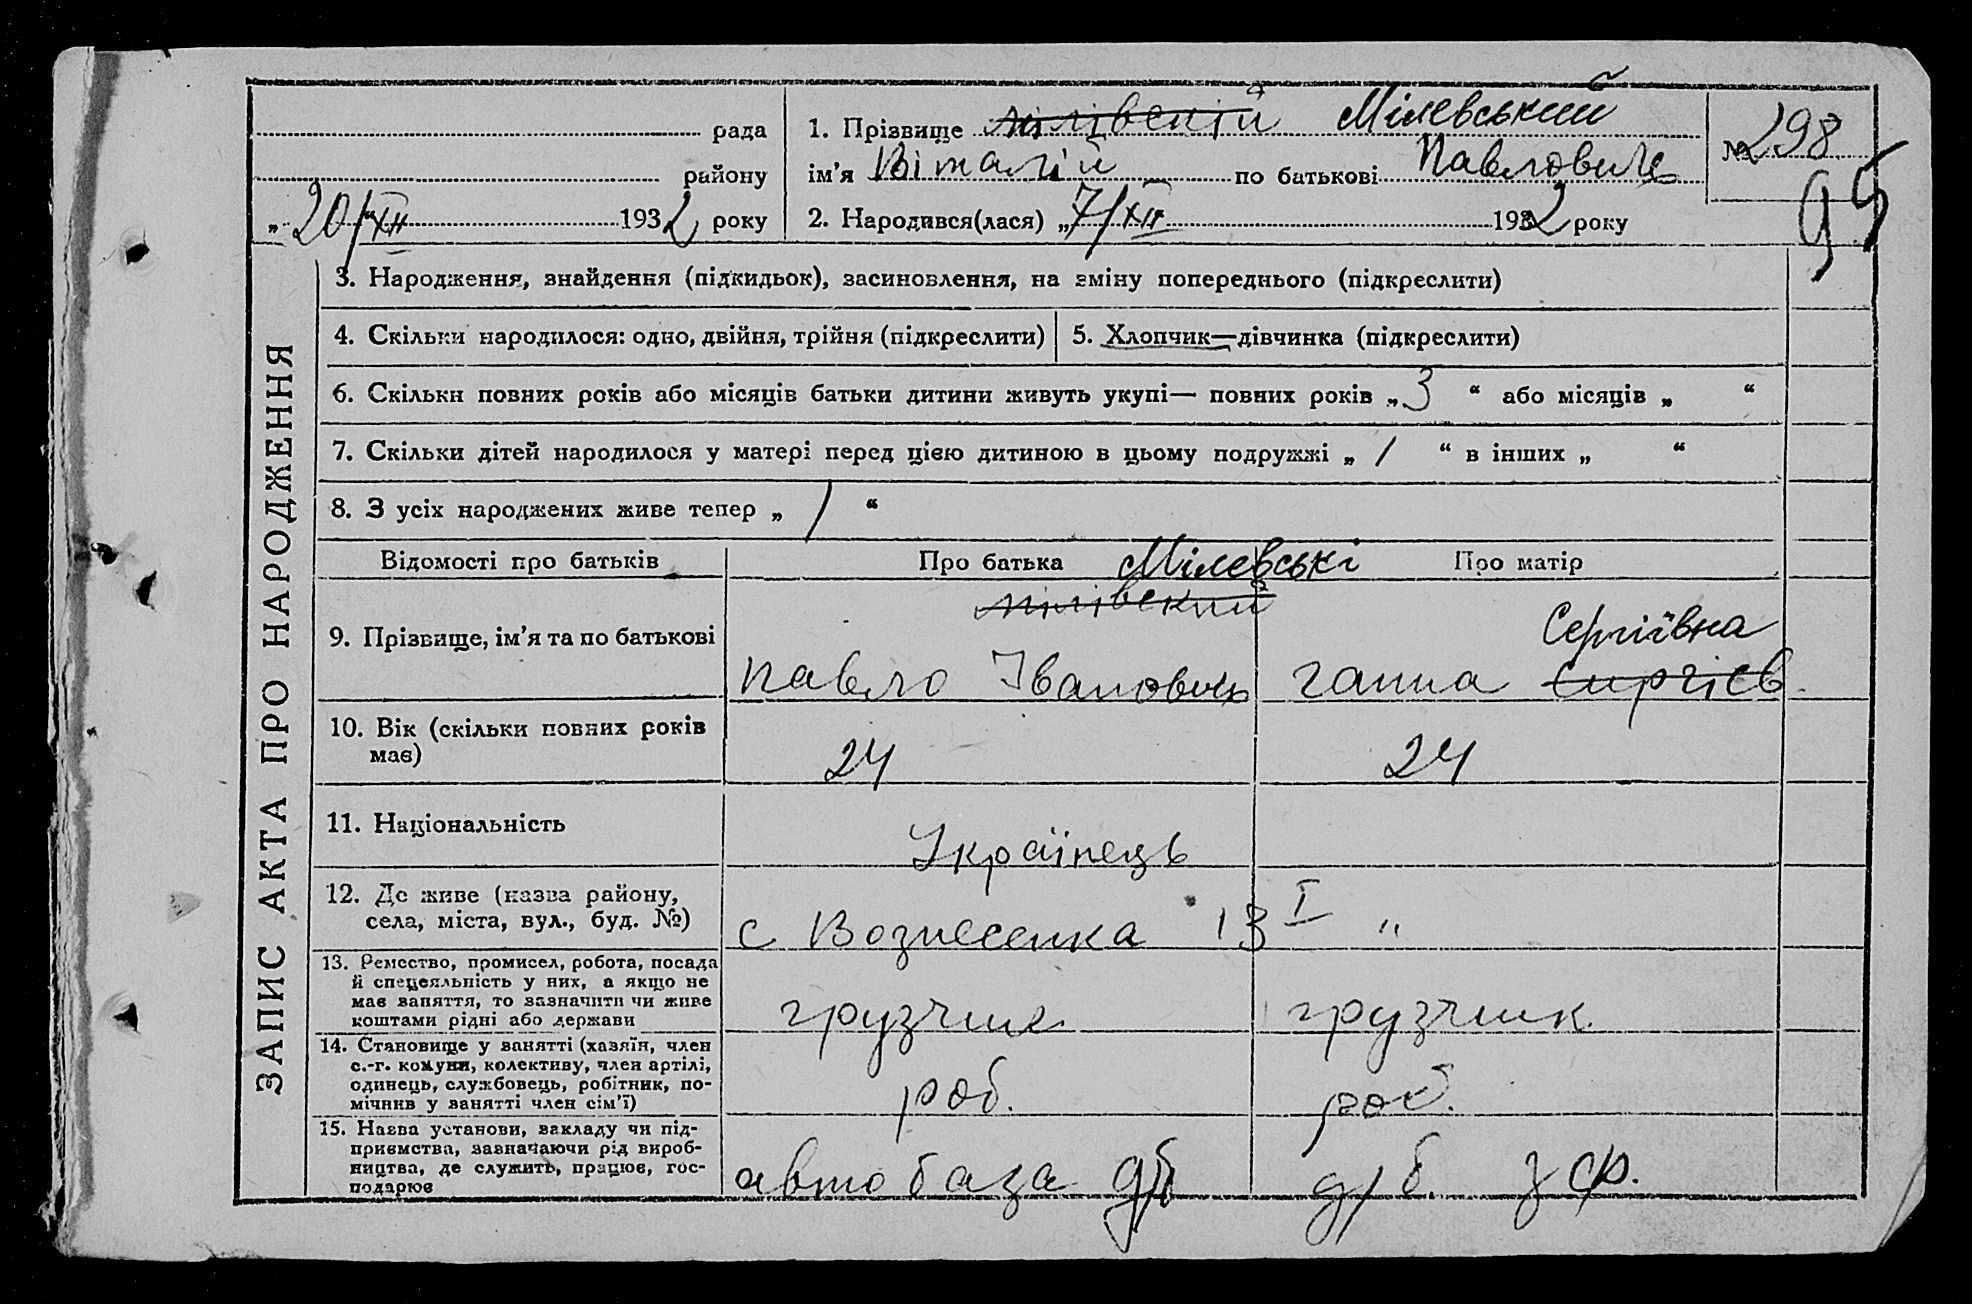 ЗАПИС АКТА ПРО НАРОДЖЕННЯ
рада
району
„ 20/XII 1932 року
1. Прізвище Мілівскій Мілевський
ім’я Віталій по батькові Павлович
2. Народився(лася) „7/XII 1932 року
№ 298
95
3. Народження, знайдення (підкидьок), засиновлення, на зміну попереднього (підкреслити)
4. Скільки народилося: одно, двійня, трійня (підкреслити)
5. Хлопчик—дівчинка (підкреслити)
6. Скільки повних років або місяців батьки дитини живуть укупі— повних років „ 3 “ або місяців „ “
7. Скільки дітей народилося у матері перед цією дитиною в цьому подружжі „ 1 “ в інших „ “
8. З усіх народжених живе тепер „ 1 “
Відомості про батьків
Про батька Мілевські Про матір
9. Прізвище, ім’я та по батькові
Мілівский
Павло Іванович
Сергіївна
Ганна Сиргієв
10. Вік (скільки повних років
має)
24
24
11. Національність
Українець
12. Де живе (назва району,
села, міста, вул., буд. №)
с Вознесенка 13 I "
13. Ремество, промисел, робота, посада
й спецеяльність у них, а якщо не
має заняття, то зазначити чи живе
коштами рідні або держави
грузчик
грузчик
14. Становище у занятті (хазяїн, член
с.-г. комуни, колективу, член артілі,
одинець, службовець, робітник, по-
мічнив у занятті член сім’ї)
роб.
роб.
15. Назва установи, закладу чи під-
приємства, зазначаючи рід вироб-
ництва, де служить, працює, гос-
подарює
автобаза д/б
д/б. з ср.